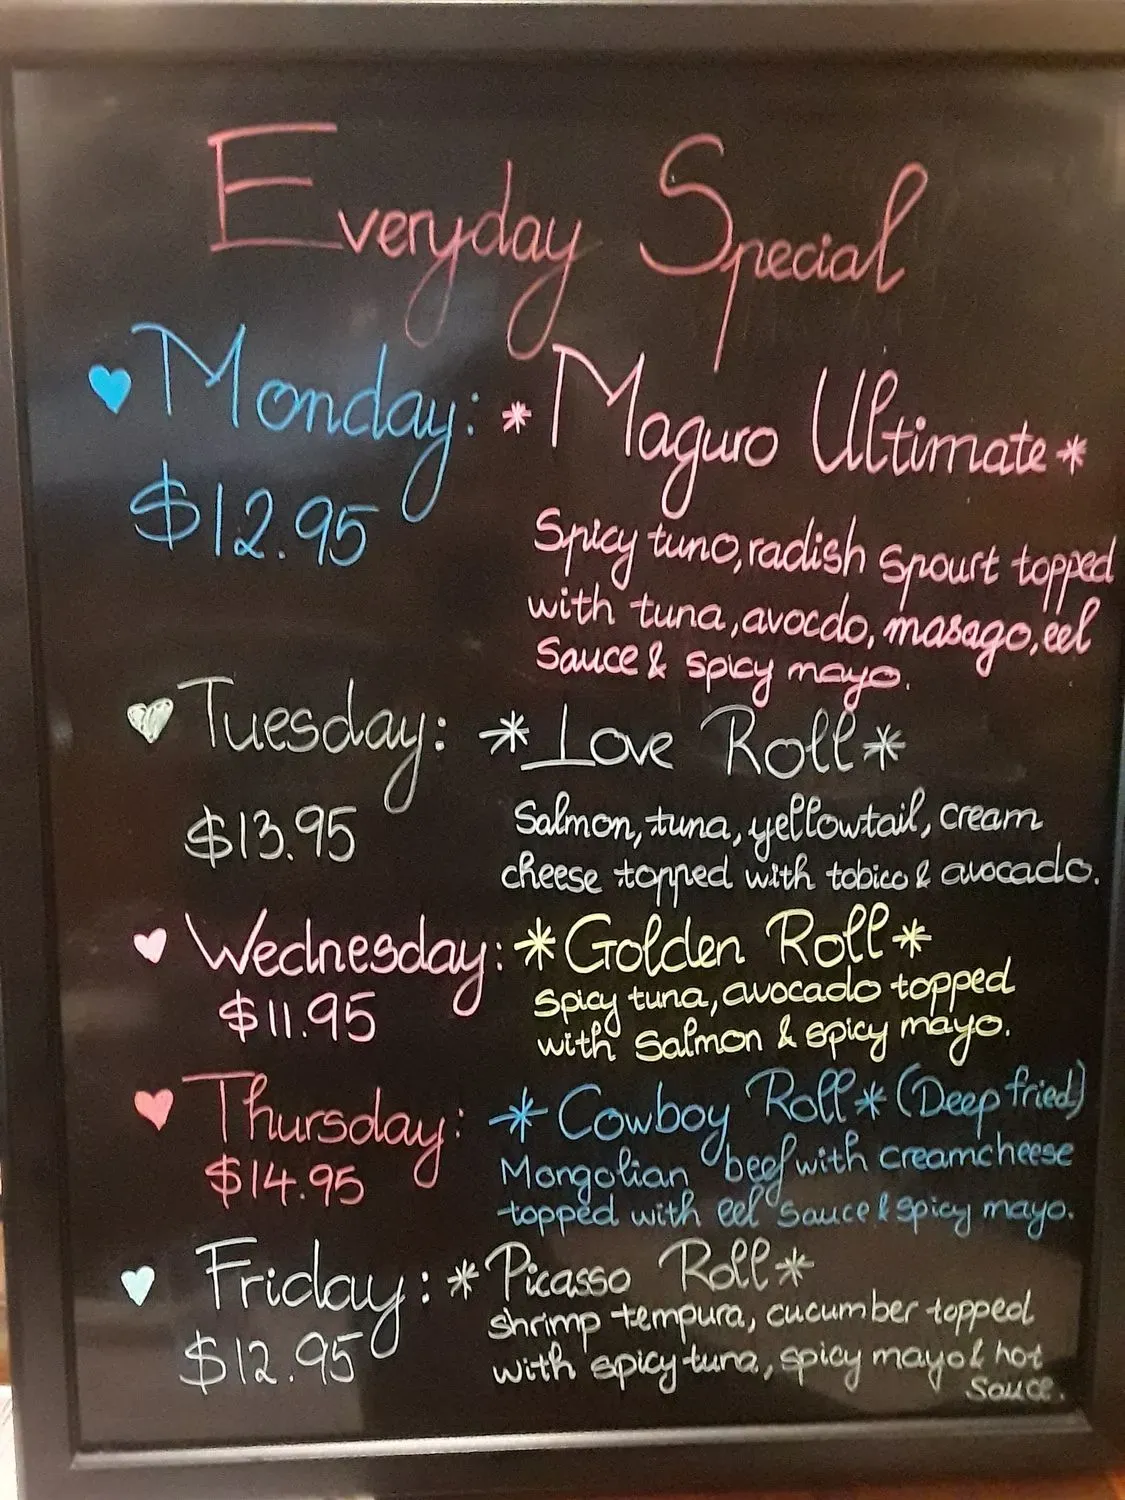 Everyday Special
Monday: *Maguro Ultimate*
$12.95
Spicy tuno, radish spourt topped
with tuna, avocdo, masago, eel
Sauce & spicy mayo.
Tuesday: *Love Roll*
$13.95
Salmon, tuna, yellowtail, cream
cheese topped with tobico & avocado.
Wednesday: *Golden Roll*
$11.95
Spicy tuna, avocado topped
with Salmon & spicy mayo.
Thursday: *Cowboy Roll* (Deep fried)
$14.95
Mongolian beef with creamcheese
topped with eel sauce & spicy mayo.
Friday: *Picasso Roll*
$12.95
shrimp tempura, cucumber topped
with spicy tuna, spicy mayo & hot
Sauce.